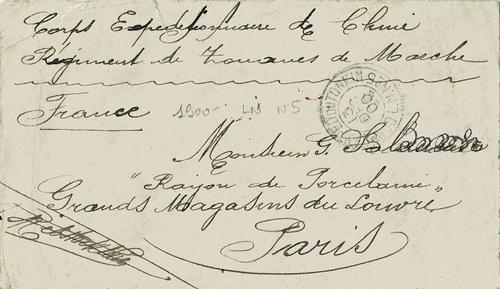 Corps Expéditionnaire de Chine
Régiment de Zouaves de Marche
France
1900- LN N°5
Monsieur G.
"Rayon de Porcelaine"
Grands Magasins du Louvre
Paris